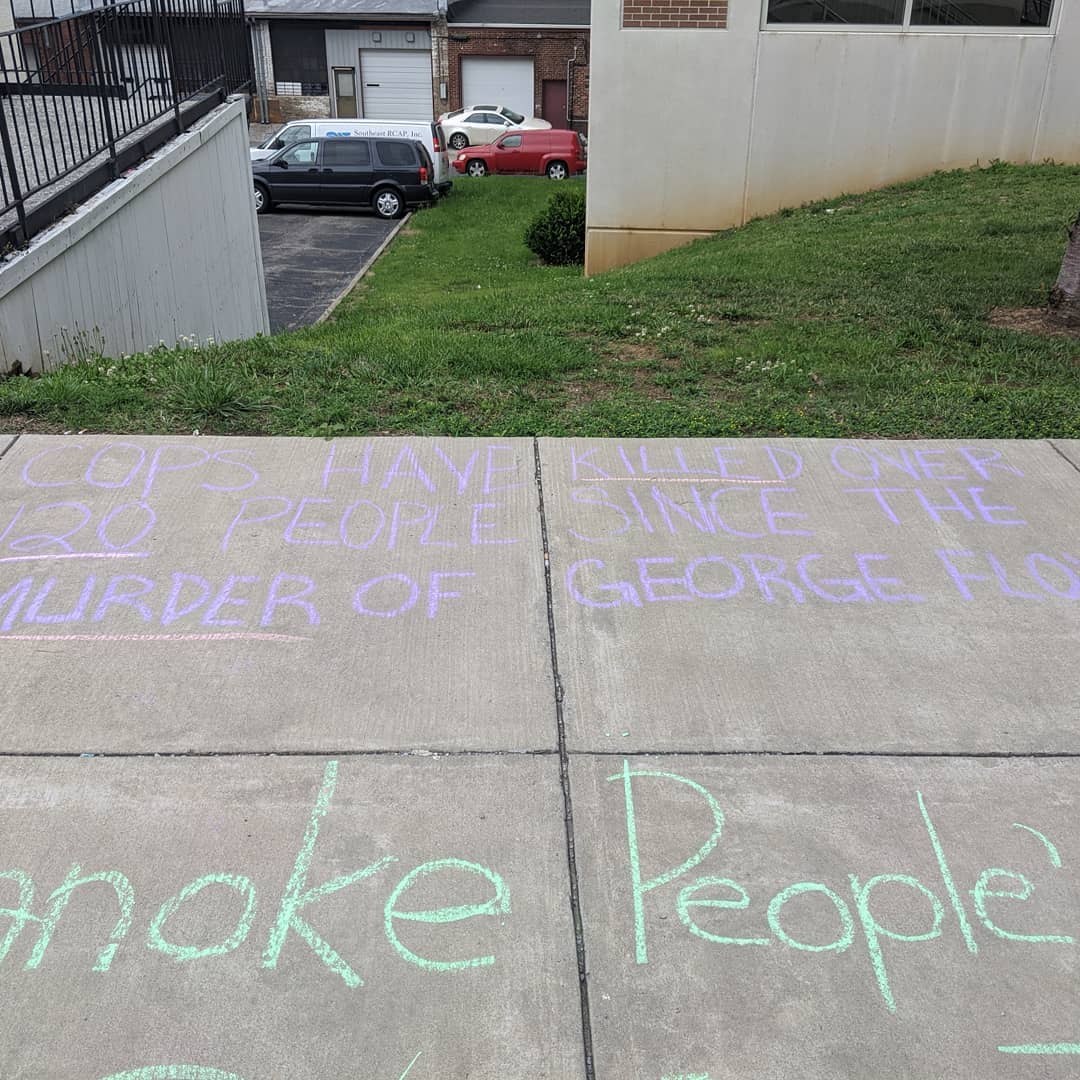 Southeast RCAP, Inc.
COPS HAVE KILLED OVER
120 PEOPLE SINCE THE
MURDER OF GEORGE FLOY
anoke People'